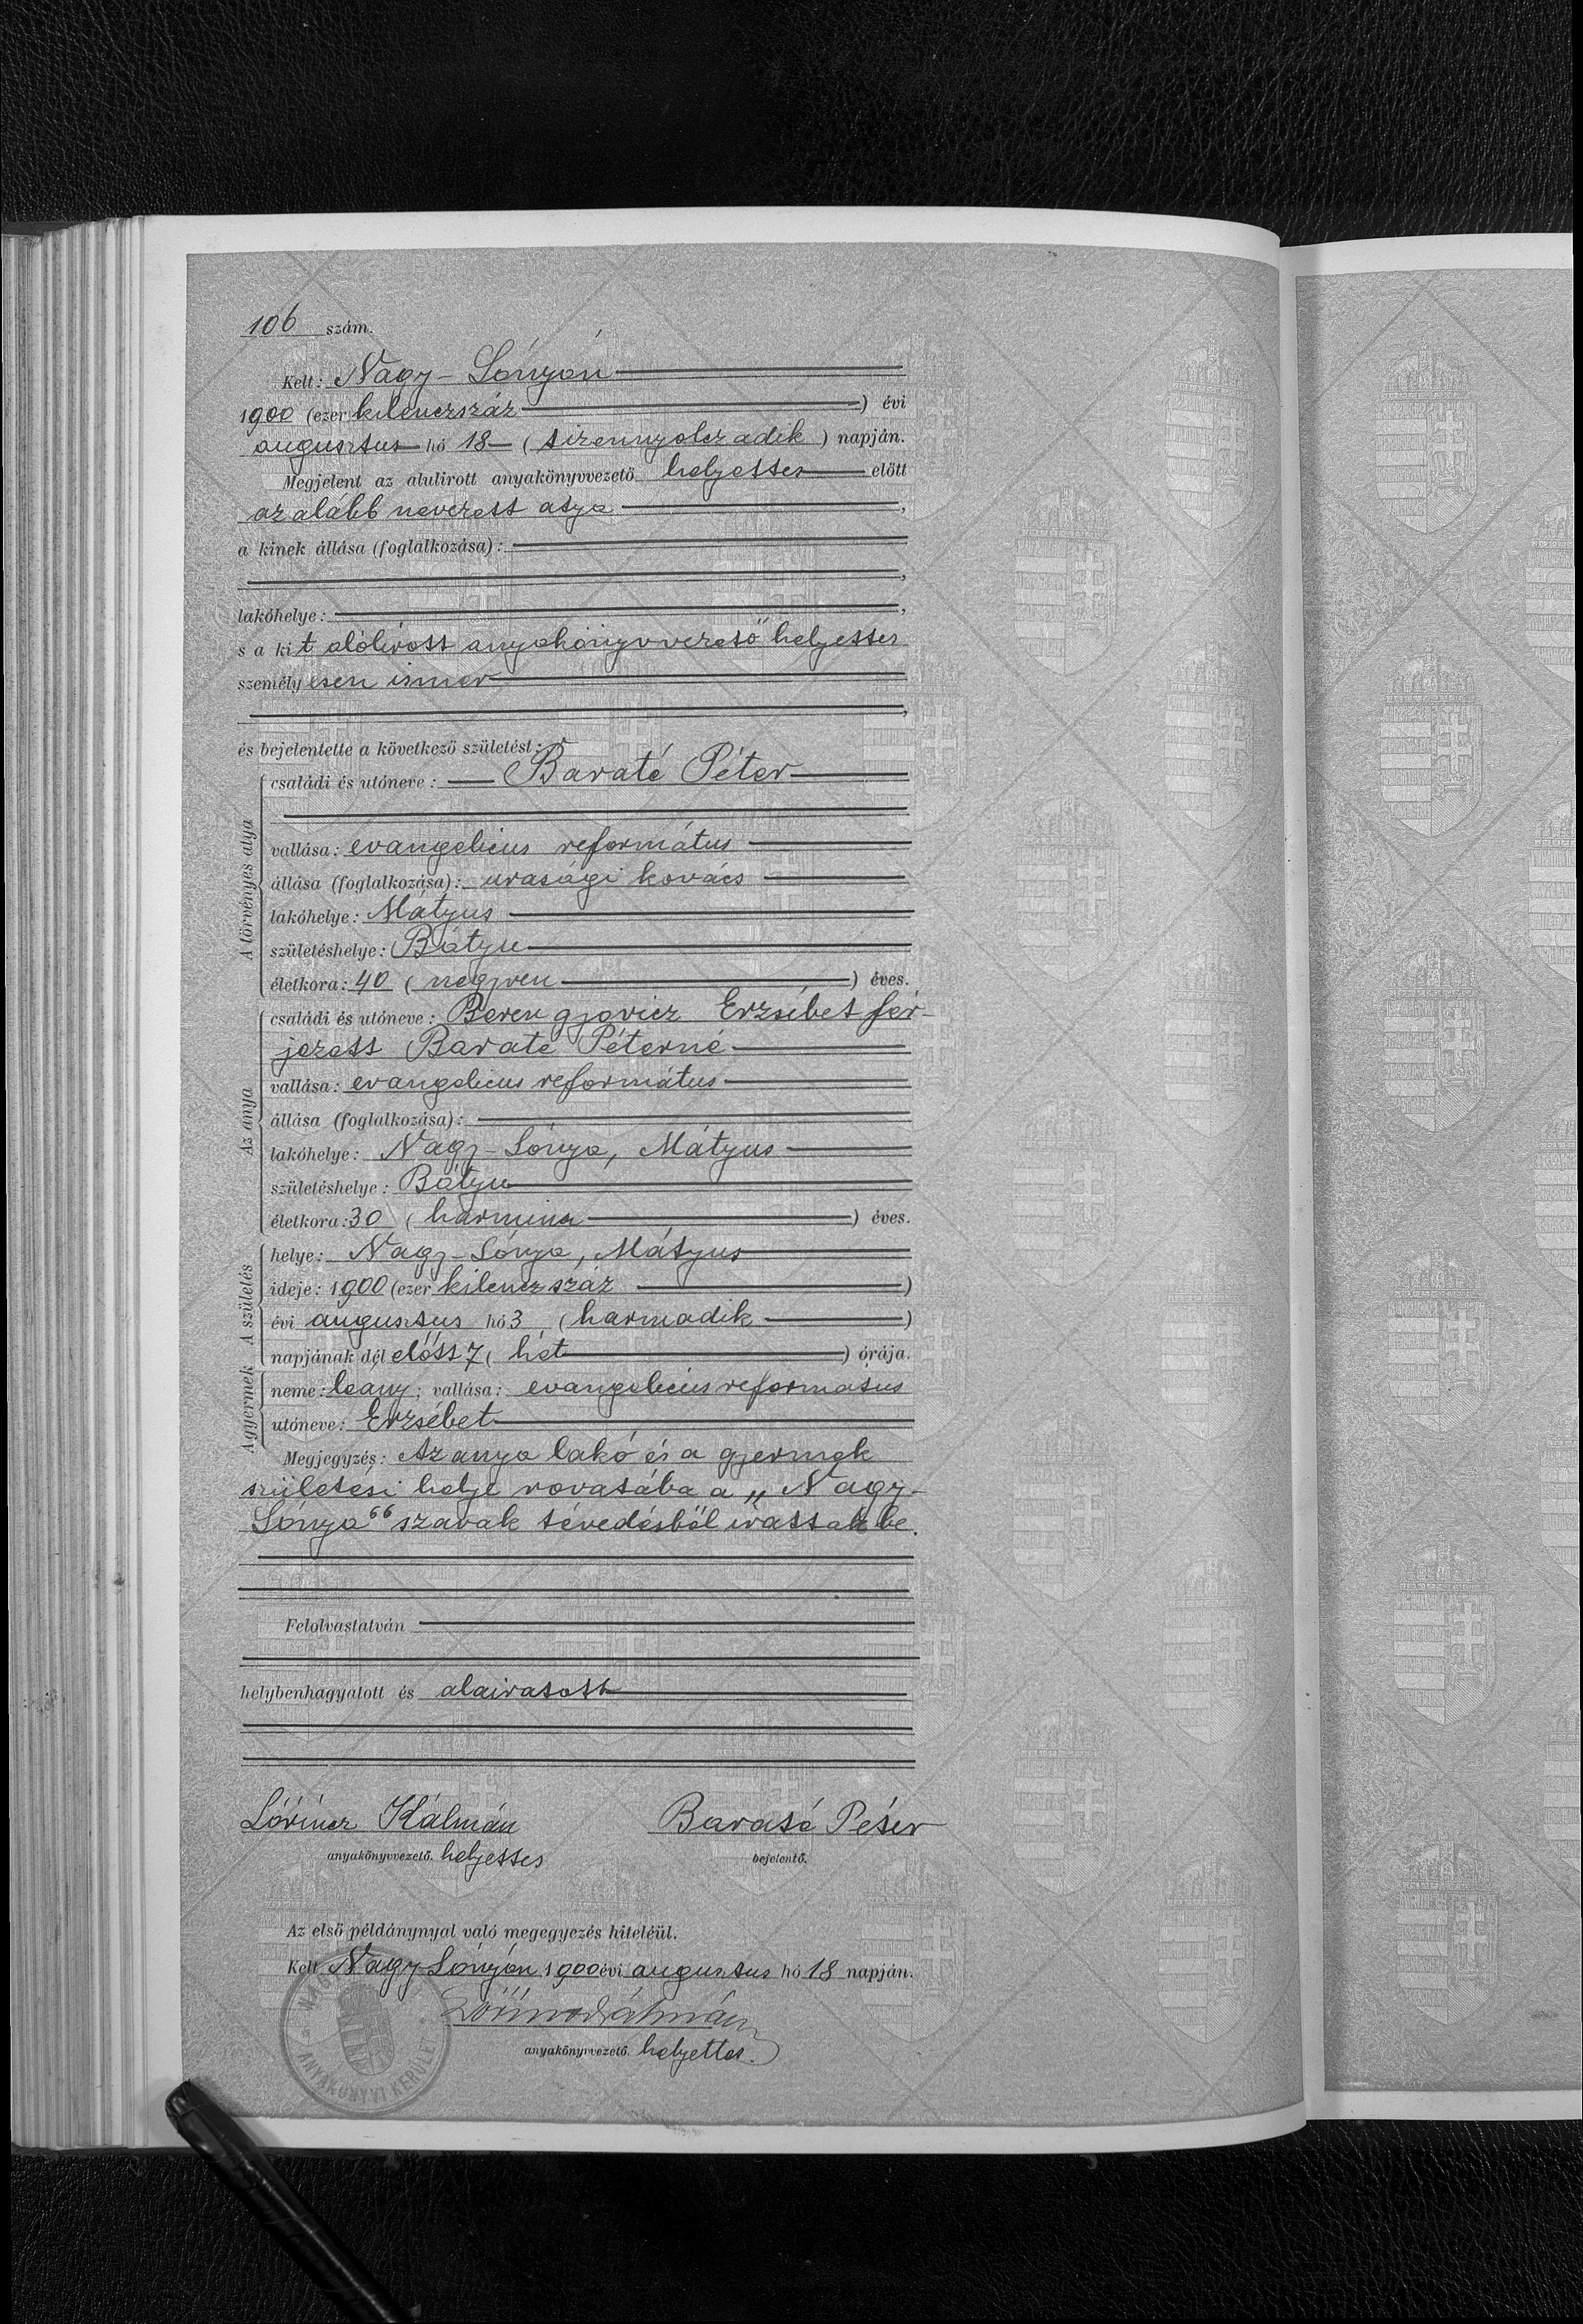 106 szám.
Kelt: Nagy-Lónyán
1900 (ezer kilenczszáz) évi
augusztus hó 18 (tizennyolczadik) napján.
Megjelent az alulirott anyakönyvvezető helyettes előtt
az alább nevezett atya,
a kinek állása (foglalkozása):
,
lakóhelye: ,
s a kit alólirott anyakönyvvezető helyettes
személyesen ismer
,
és bejelentette a következő születést:
A törvényes atya
családi és utóneve: Baraté Péter
vallása: evangelicus református
állása (foglalkozása): urasági kovács
lakóhelye: Mátyus
születéshelye: Bátyu
életkora: 40 (negyven) éves.
Az anya
családi és utóneve: Erzsébet fér-
jezett Baraté Péterné
vallása: evangelicus református
állása (foglalkozása):
lakóhelye: Nagy-Lónya, Mátyus
születéshelye: Bátyu
életkora: 30 (harmincz) éves.
A születés
helye: Nagy-Lónya, Mátyus
ideje: 1900 (ezer kilenczszáz)
évi augusztus hó 3 (harmadik)
napjának dél előtt 7 (hét) órája.
A gyermek
neme: leány; vallása: evangelicus református
utóneve: Erzsébet
Megjegyzés: Az anya lakó és a gyermek
születési helye rovatába a „Nagy-
Lónya“ szavak tévedésből irattak be.
Felolvastatván
helybenhagyatott és alairatott
Lőrincz Kálmán Baraté Péter
anyakönyvvezető. helyettes bejelentő.
Az első példánynyal való megegyezés hiteléül.
Kelt Nagy-Lónyán 1900 évi augusztus hó 18 napján.
Lőrincz Kálmán
anyakönyvvezető. helyettes.
ANYAKÖNYVI KERÜLET